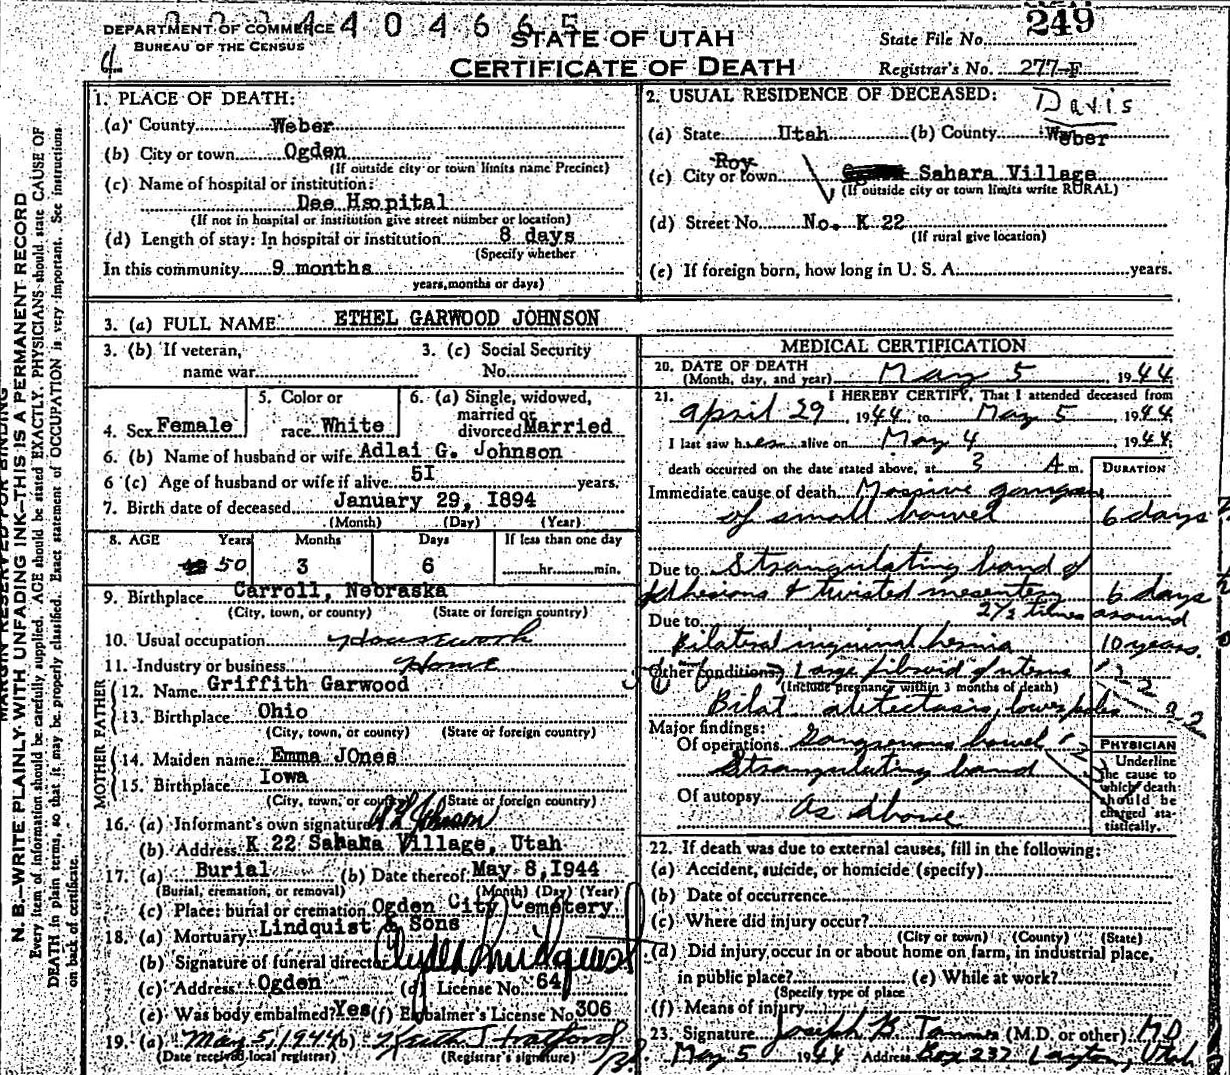 DEPARTMENT OF COMMERCE
BUREAU OF THE CENSUS
404665
STATE OF UTAH
CERTIFICATE OF DEATH
State File No. 249
Registrar's No. 277-F
4
MARGIN RESERVED FOR BINDING
N. B.—WRITE PLAINLY WITH UNFADING INK—THIS IS A PERMANENT RECORD
Every item of information should be carefully supplied. AGE should be stated EXACTLY. PHYSICIANS should state CAUSE OF
DEATH in plain terms, so that it may be properly classified. Exact statement of OCCUPATION is very important. See instructions
on back of certificate.
1. PLACE OF DEATH:
(a) County Weber
(b) City or town Ogden
(If outside city or town limits name Precinct)
(c) Name of hospital or institution:
Dee Hsopital
(If not in hospital or institution give street number or location)
(d) Length of stay: In hospital or institution 8 days
(Specify whether
In this community 9 months
years, months or days)
2. USUAL RESIDENCE OF DECEASED:
Davis
(a) State Utah (b) County Weber
Roy
(c) City or town Sahara Village
(If outside city or town limits write RURAL)
(d) Street No. No. K 22
(If rural give location)
(e) If foreign born, how long in U. S. A. years.
3. (a) FULL NAME ETHEL GARWOOD JOHNSON
3. (b) If veteran,
name war
3. (c) Social Security
No.
4. Sex Female
5. Color or
race White
6. (a) Single, widowed,
married or
divorced Married
6. (b) Name of husband or wife Adlai G. Johnson
6 (c) Age of husband or wife if alive 5I years.
7. Birth date of deceased January 29, I894
(Month) (Day) (Year)
8. AGE Years Months Days If less than one day
50 3 6 hr. min.
9. Birthplace Carroll, Nebraska
(City, town, or county) (State or foreign country)
10. Usual occupation Housework
11. Industry or business Home
FATHER
12. Name Griffith Garwood
13. Birthplace Ohio
(City, town, or county) (State or foreign country)
MOTHER
14. Maiden name Emma JOnes
15. Birthplace Iowa
(City, town, or county) (State or foreign country)
16. (a) Informant's own signature Johnson
(b) Address K 22 Sahara Village, Utah
17. (a) Burial (b) Date thereof May 8, 1944
(Burial, cremation, or removal) (Month) (Day) (Year)
(c) Place: burial or cremation Ogden City Cemetery
18. (a) Mortuary Lindquist & Sons
(b) Signature of funeral director Clyde Lindquist
(c) Address Ogden (d) License No. 64
(e) Was body embalmed? Yes (f) Embalmer's License No. 306
19. (a) May 5, 1944 (b) Keith Stratford
(Date received local registrar) (Registrar's signature)
MEDICAL CERTIFICATION
20. DATE OF DEATH
(Month, day, and year) May 5 1944
21. I HEREBY CERTIFY, That I attended deceased from
April 29, 1944, to May 5, 1944
I last saw her alive on May 4, 1944
death occurred on the date stated above, at 3 A m.
DURATION
Immediate cause of death Massive gangrene
of small bowel 6 days
Due to Strangulating band of
adhesions & twisted mesentery 6 days
2½ times around
Due to
Bilateral inguinal hernia 10 years.
Other conditions Large fibroid of uterus
(Include pregnancy within 3 months of death)
Bilat atelectasis, lower poles
Major findings:
Of operations Gangrenous bowel
Strangulating band
Of autopsy As above
PHYSICIAN
Underline
the cause to
which death
should be
charged sta-
tistically.
22. If death was due to external causes, fill in the following:
(a) Accident, suicide, or homicide (specify)
(b) Date of occurrence
(c) Where did injury occur?
(City or town) (County) (State)
(d) Did injury occur in or about home on farm, in industrial place,
in public place? (e) While at work?
(Specify type of place
(f) Means of injury
23. Signature Joseph B. Tanner (M.D. or other) MD
May 5 1944 Address Box 237 Layton, Utah